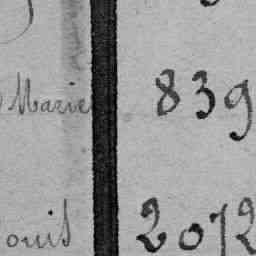 Marie 839
ouis 2072